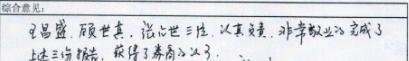 综合意见：
王昌盛、顾世真、张占世三位，认真负责，非常敬业的完成了
上述三份报告，获得了券商的认可。